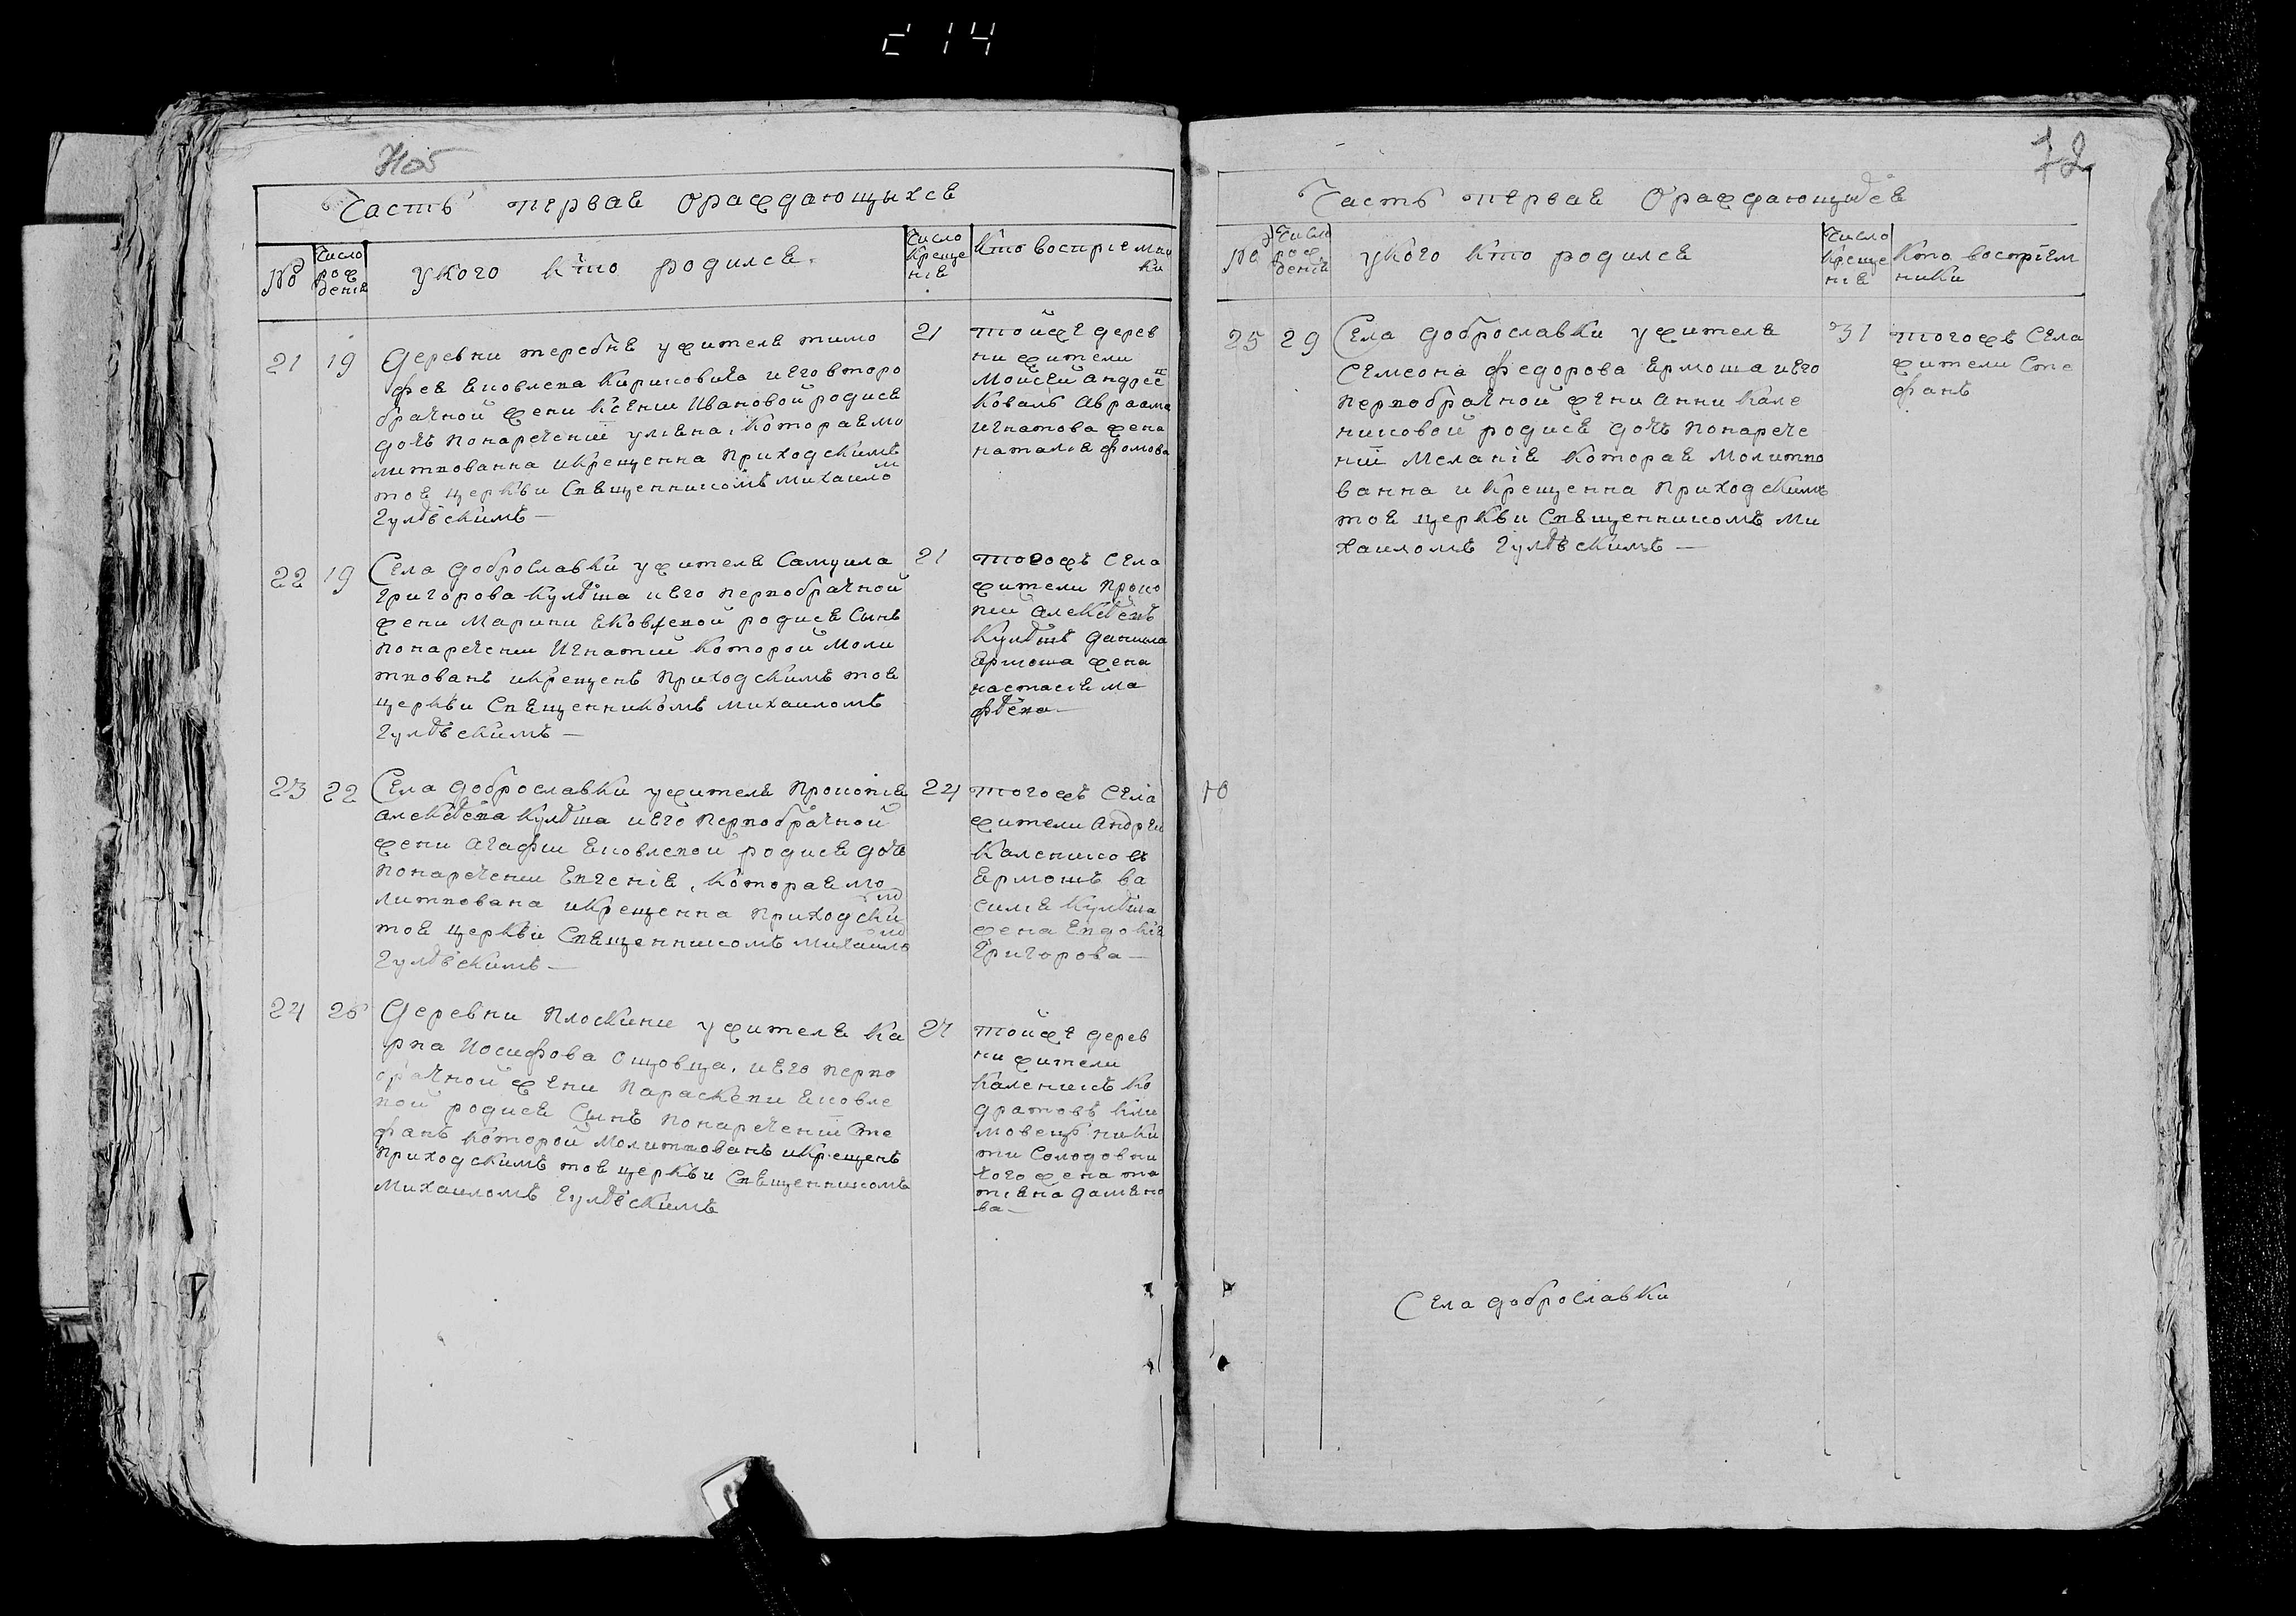 214
Часть первая ораждающыхся
№
Число рож дения
у кого кто родился.
Число креще ния
Кто восприемни ки
21
19
Деревни теребня ужителя тимо
фея Яковлева Кириловича иего второ
брачной жени Ксении Ивановой родися
дочь понаречении улияна, которая мо
литвованна икрещенна Приходскимъ
тоя церкви Священникомъ михаило м
Гулъскимъ —
21
тойже дерев
ни жители
Моисей андрее в
Коваль Авраама
игнатова жена
наталия фомова
22
19
Села доброславки ужителя Самуила
Григорова Кулбша иего первобрачной
жени Марини Яковлевой родися Сынъ
понаречении Игнатии которой моли
твованъ икрещенъ Приходскимъ тоя
церкви Священникомъ михаиломъ
Гулъскимъ —
21
тогожъ села
жители Проко
пии алексеевъ
Данила
Ермоша жена
настасия ма
23
22
Села доброславки ужителя Прокопия
алексеева Кулбша иего первобрачной
жени агафии Яковлевой родися дочь
понаречении Евгения, которая мо
литвована икрещенна Приходски мъ
тоя церкви Священникомъ михаило м
Гулъскимъ —
24
тогожъ села
жители Андреи
Калениковъ
Ермошъ ва
силия Кулбша
жена Евдокия
Григорова —
24
26
Деревни Плоскини ужителя Ка
рпа Иосифова Ощовца, иего перво
брачной жени Параскеви Яковле
вой родися Сынъ понаречении Сте
фанъ которой молитвованъ икрещенъ
Приходскимъ тоя церкви Священникомъ
Михаиломъ Гулъскимъ
27
тойже дерев
ни жители
каленикъ ко
дратовъ кли
мовецъ ники
ти Солодовни
кого жена та
тияна дамяно
ва —
72
Часть первая Ораждающихся
№
Число рож дения
укого кто родился
Число креще ния
Кто восприем ники
25
29
Села доброславки ужителя
Семеона федорова Ермоша иего
первобрачной жени анни кале
никовой родися дочь понарече
нии Мелания которая молитво
ванна икрещенна Приходскимъ
тоя церкви Священникомъ Ми
хаиломъ Гулъскимъ —
31
тогожъ Села
жители Сте
фанъ
Ю
Села доброславки